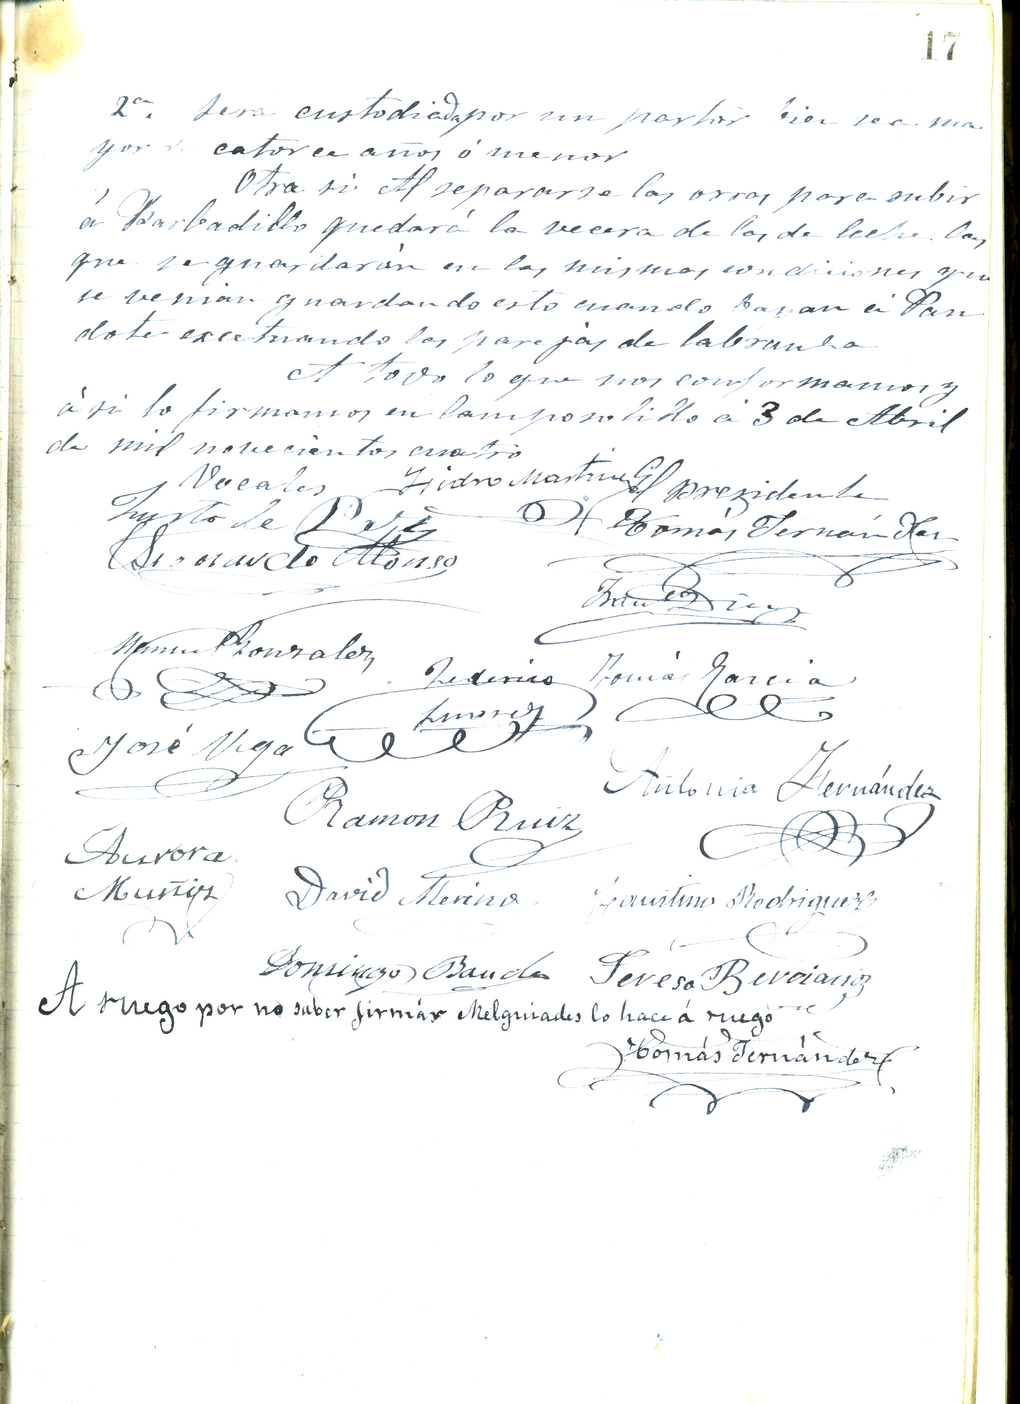 17
2ª. Sera custodiada por un pastor bien sea ma
yor de catorce años ó menor
Otra si. Al separarse las orras para subir
á Barbadillo quedará la vecera de las de leche. las
que se guardarán en las mismas condiciones que
se venian guardando esto cuando bagan á Pan
dote excetuando las parejas de labranza
A todo lo que nos conformamos y
ási lo firmamos en Camposolillo á 3 de Abril
de mil novecientos cuatro
Vocales Isidro Martinez El presidente
Justo de Tomás Fernández
Bernardo Alonso
Manuel Gonzalez
Federico Tomás Garcia
José Vega
Antonia Hernández
Ramon Ruiz
Aurora
Muñiz David Merino Faustino Rodriguez
Domingo Teresa Berciano
A ruego por no saber firmár Melquiades lo hace á ruego
Tomás Fernández